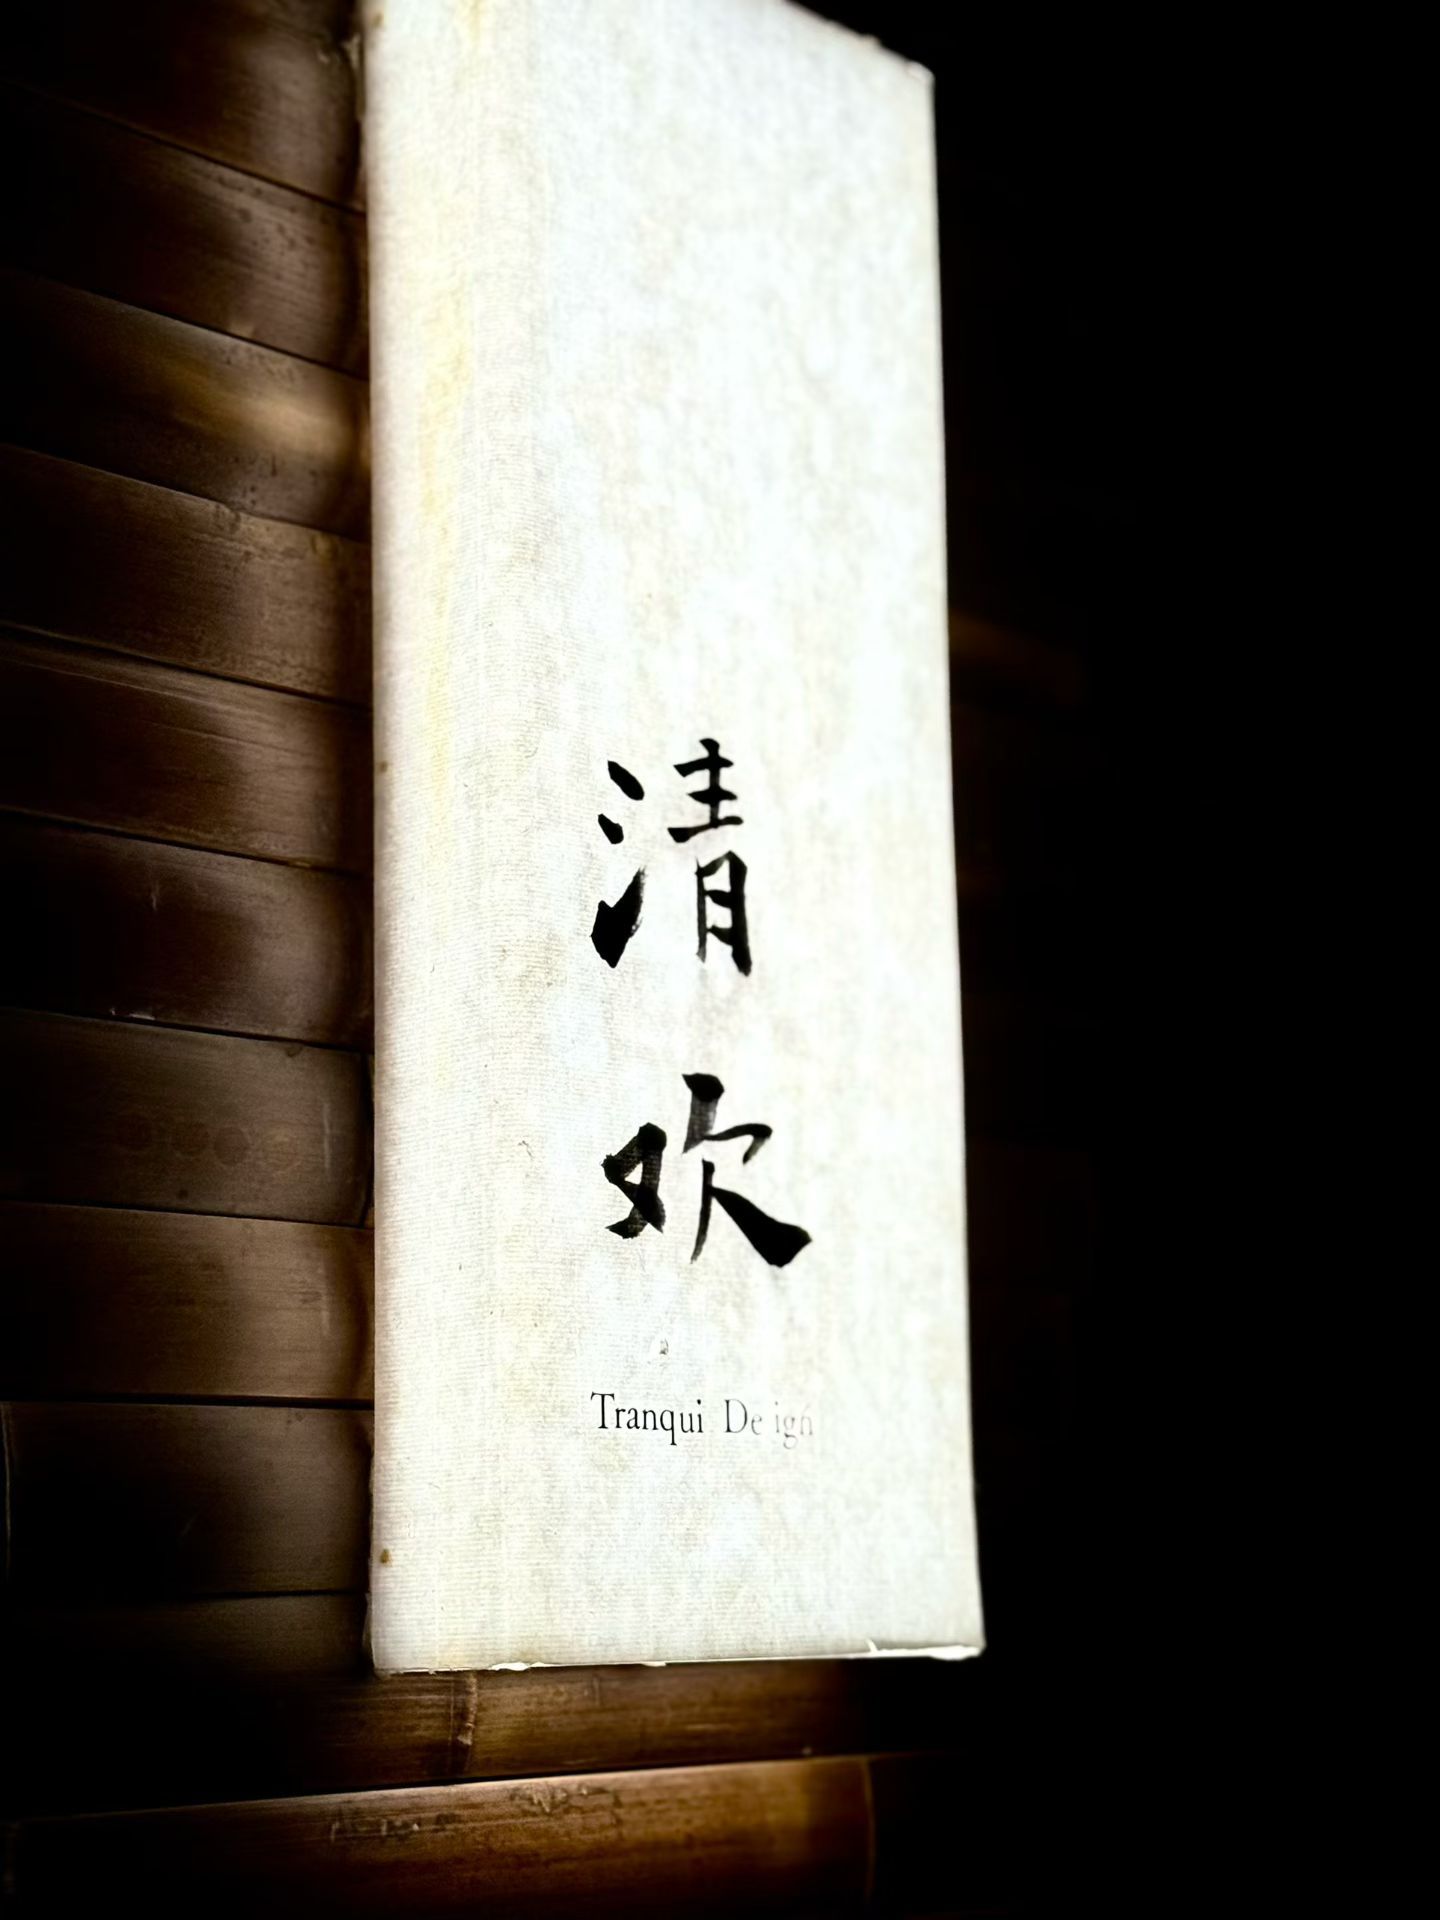 清
欢
Tranqui De ign